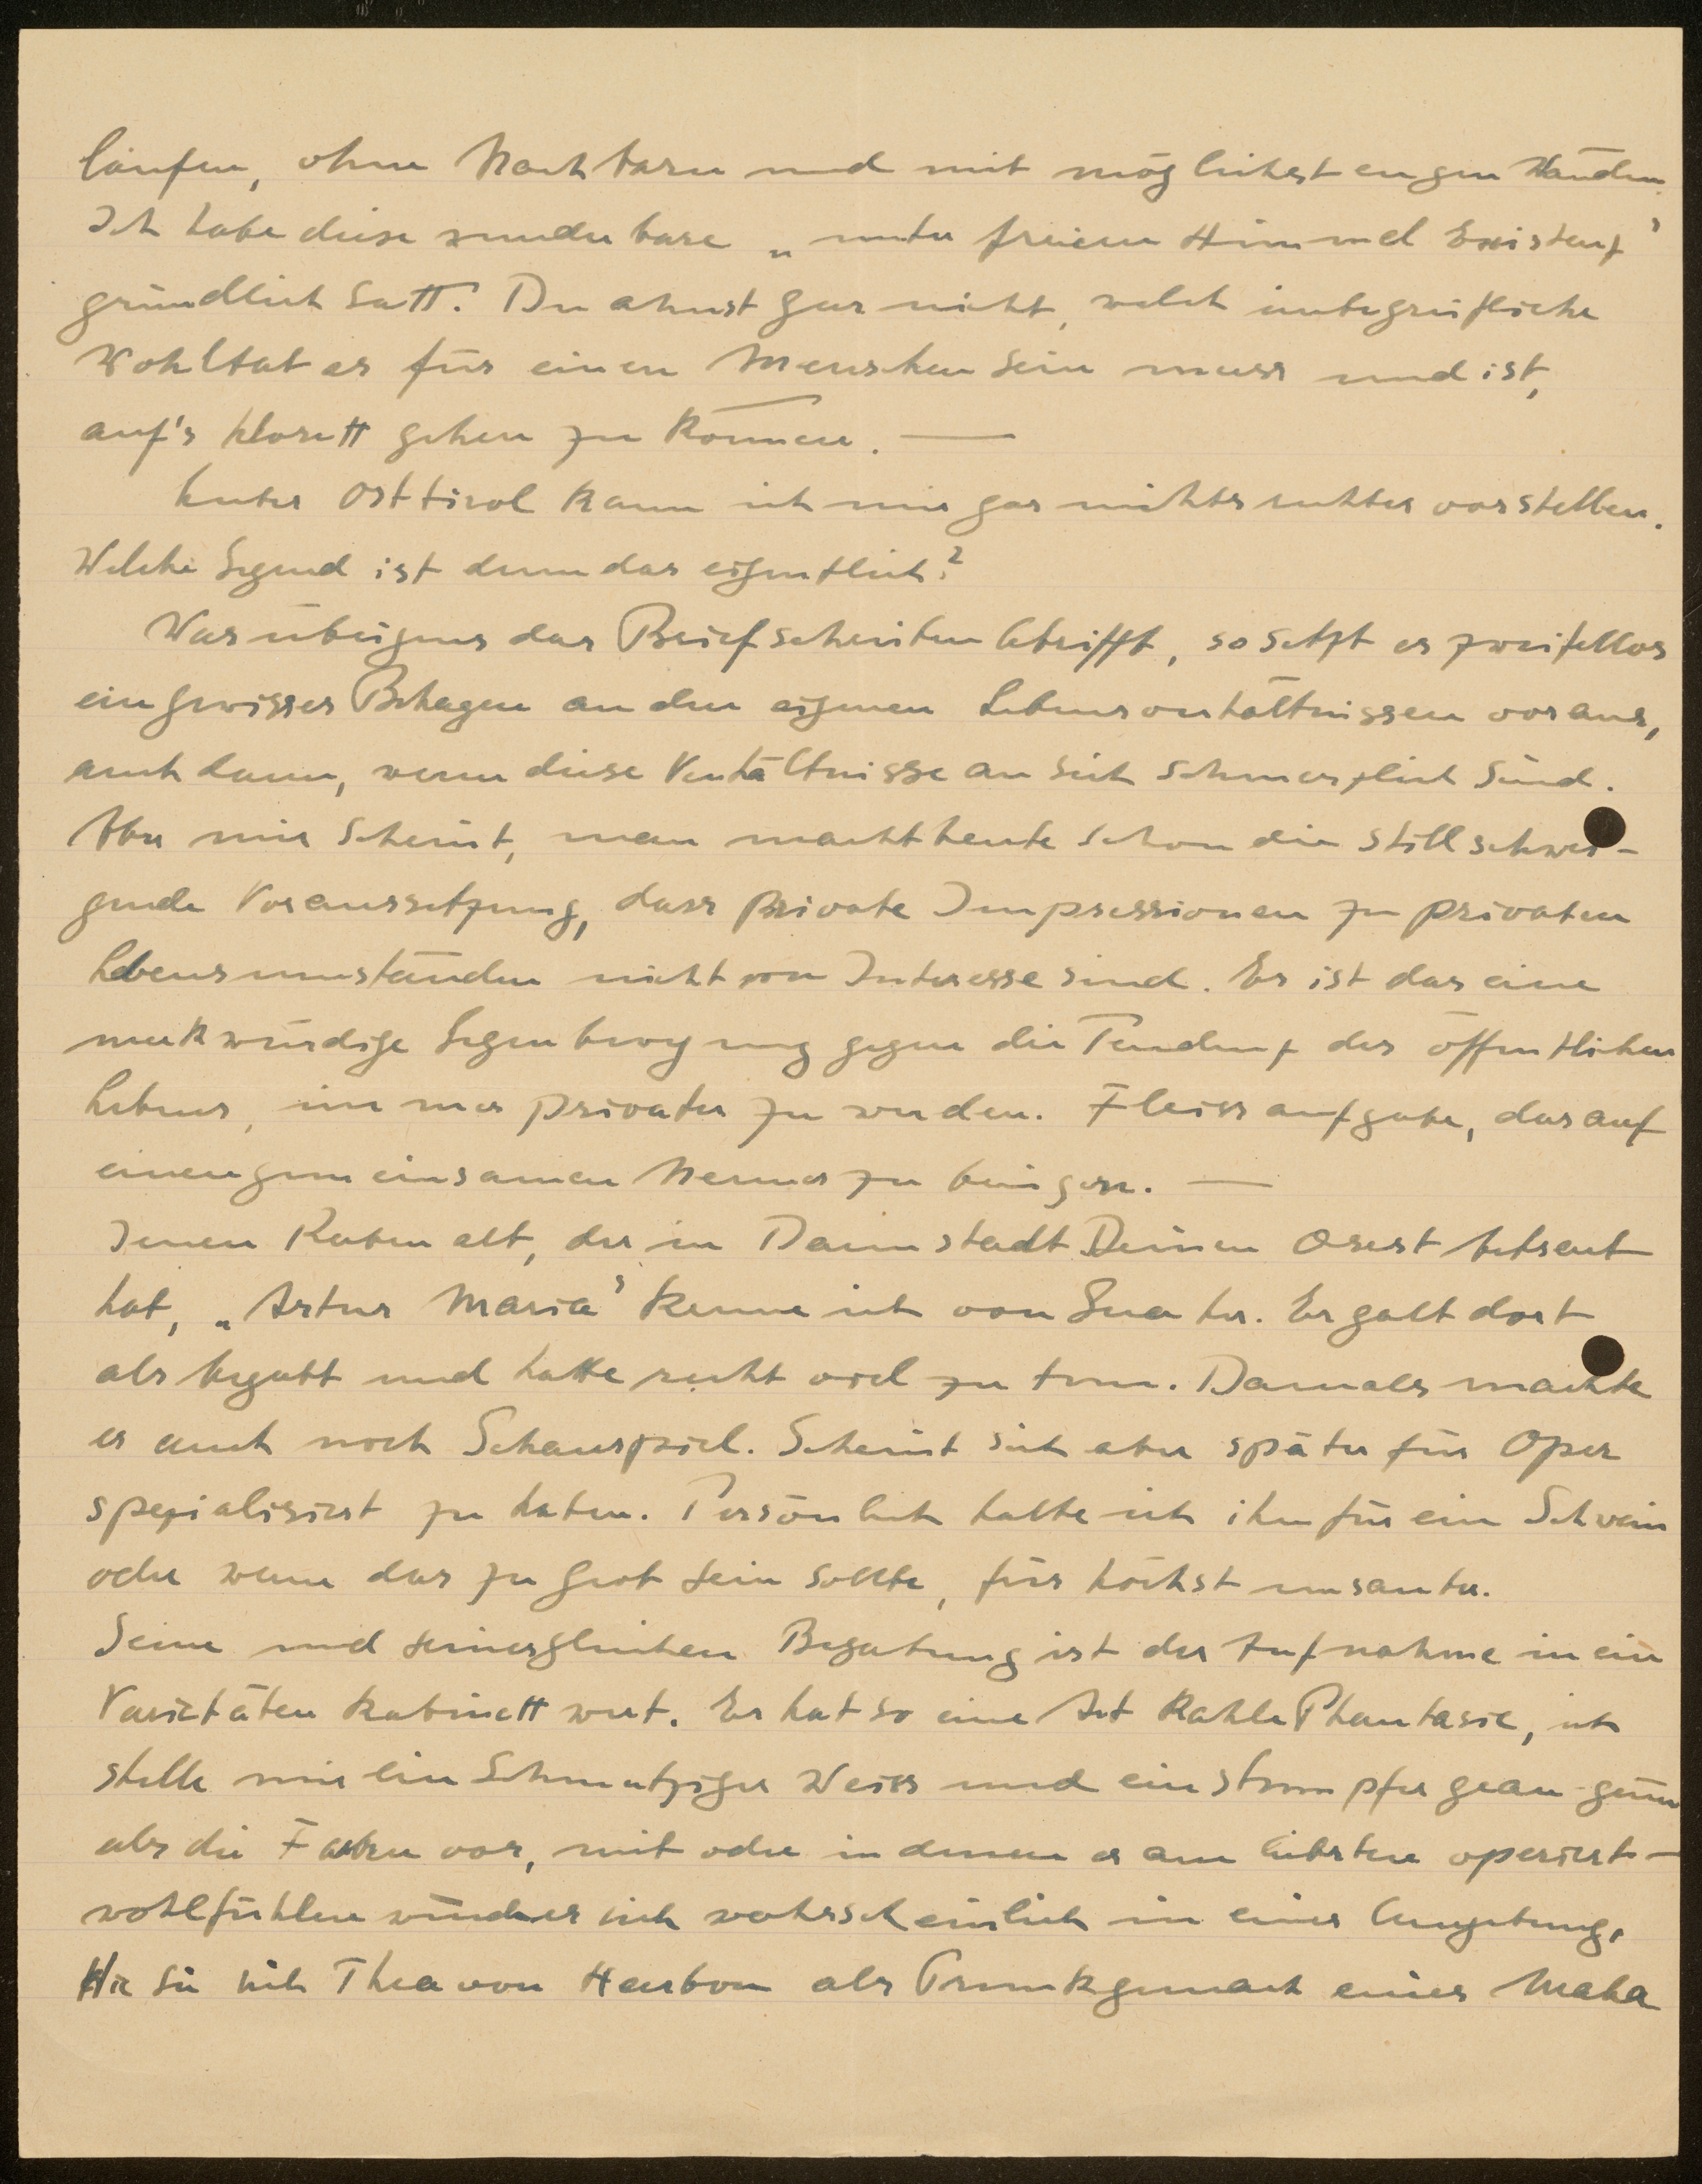 laufen, ohne Nachbarn und mit möglichst engen Wänden.
Ich habe diese wunderbare „unter freiem Himmel Existenz"
gründlich satt. Du ahnst gar nicht, welch unbegreifliche
Wohltat es für einen Menschen sein muss und ist,
auf's Klosett gehen zu können. —
Unter Osttirol kann ich mir gar nichts rechtes vorstellen.
Welche Gegend ist denn das eigentlich?
Was übrigens das Briefschreiben betrifft, so setzt es zweifellos
ein gewisses Behagen an den eigenen Lebensverhältnissen voraus,
auch dann, wenn diese Verhältnisse an sich schmerzlich sind.
Aber mir scheint, man macht heute schon die stillschwei-
gende Voraussetzung, dass private Impressionen zu privaten
Lebensumständen nicht von Interesse sind. Es ist das eine
merkwürdige Gegenbewegung gegen die Tendenz des öffentlichen
Lebens, immer privater zu werden. Fleissaufgabe, das auf
einen gemeinsamen Nenner zu bringen. —
Jenen Rabenalt, der in Darmstadt Deinen Orest betreut
hat, „Artur Maria" kenne ich von Gera her. Er galt dort
als begabt und hatte recht viel zu tun. Damals machte
er auch noch Schauspiel. Scheint sich aber später für Oper
spezialisiert zu haben. Persönlich halte ich ihn für ein Schwein
oder wenn das zu grob sein sollte, für höchst unsauber.
Seine und seinesgleichen Begabung ist der Aufnahme in ein
Varietäten Kabinett wert. Er hat so eine Art kahle Phantasie, ich
stelle mir ein schmutziges Weiss und ein stumpfes grau-grün
als die Farben vor, mit oder in denen er am liebsten operiert —
wohlfühlen würde er sich wahrscheinlich in einer Umgebung,
die sich Thea von Harbou als Prunkgemach eines Maha